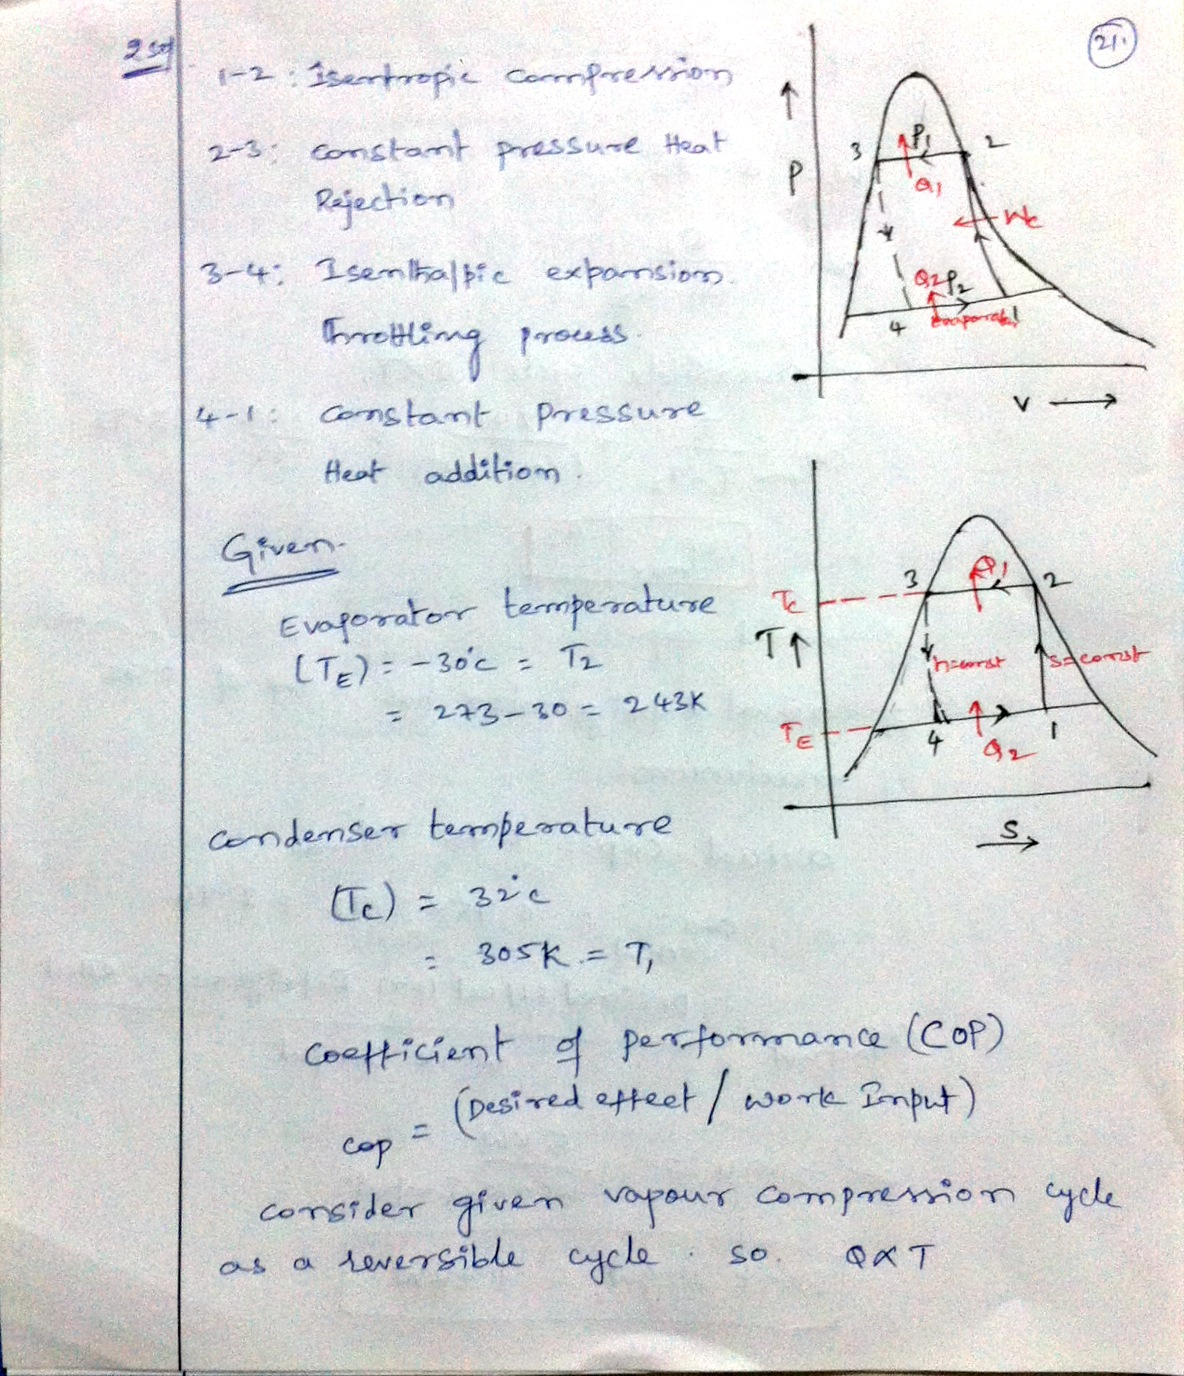 21.
2 sol
1-2 : Isentropic compression
2-3: constant pressure Heat
Rejection
3-4: Isenthalpic expansion.
Throttling process.
4-1: constant pressure
Heat addition.
P
3
P1
2
Q1
Wc
Q2 P2
4 Evaporator
V
Given
Evaporator temperature
(TE) = -30°c = T2
= 273-30 = 243K
Tc
3
Q1
2
T
h=const
s=const
TE
4
Q2
1
S
condenser temperature
(Tc) = 32°c
= 305K = T1
coefficient of performance (COP)
cop = (Desired effect / work Input)
consider given vapour compression cycle
as a reversible cycle. so. Q∝T